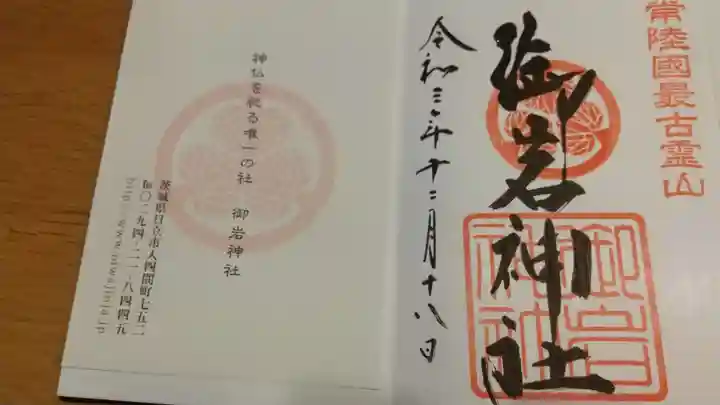 常陸國最古霊山
御岩神社
御岩神社
令和三年十二月十八日
神仏を祀る唯一の社 御岩神社
茨城県日立市入四間町七五二
℡〇二九四-二一-八四四五